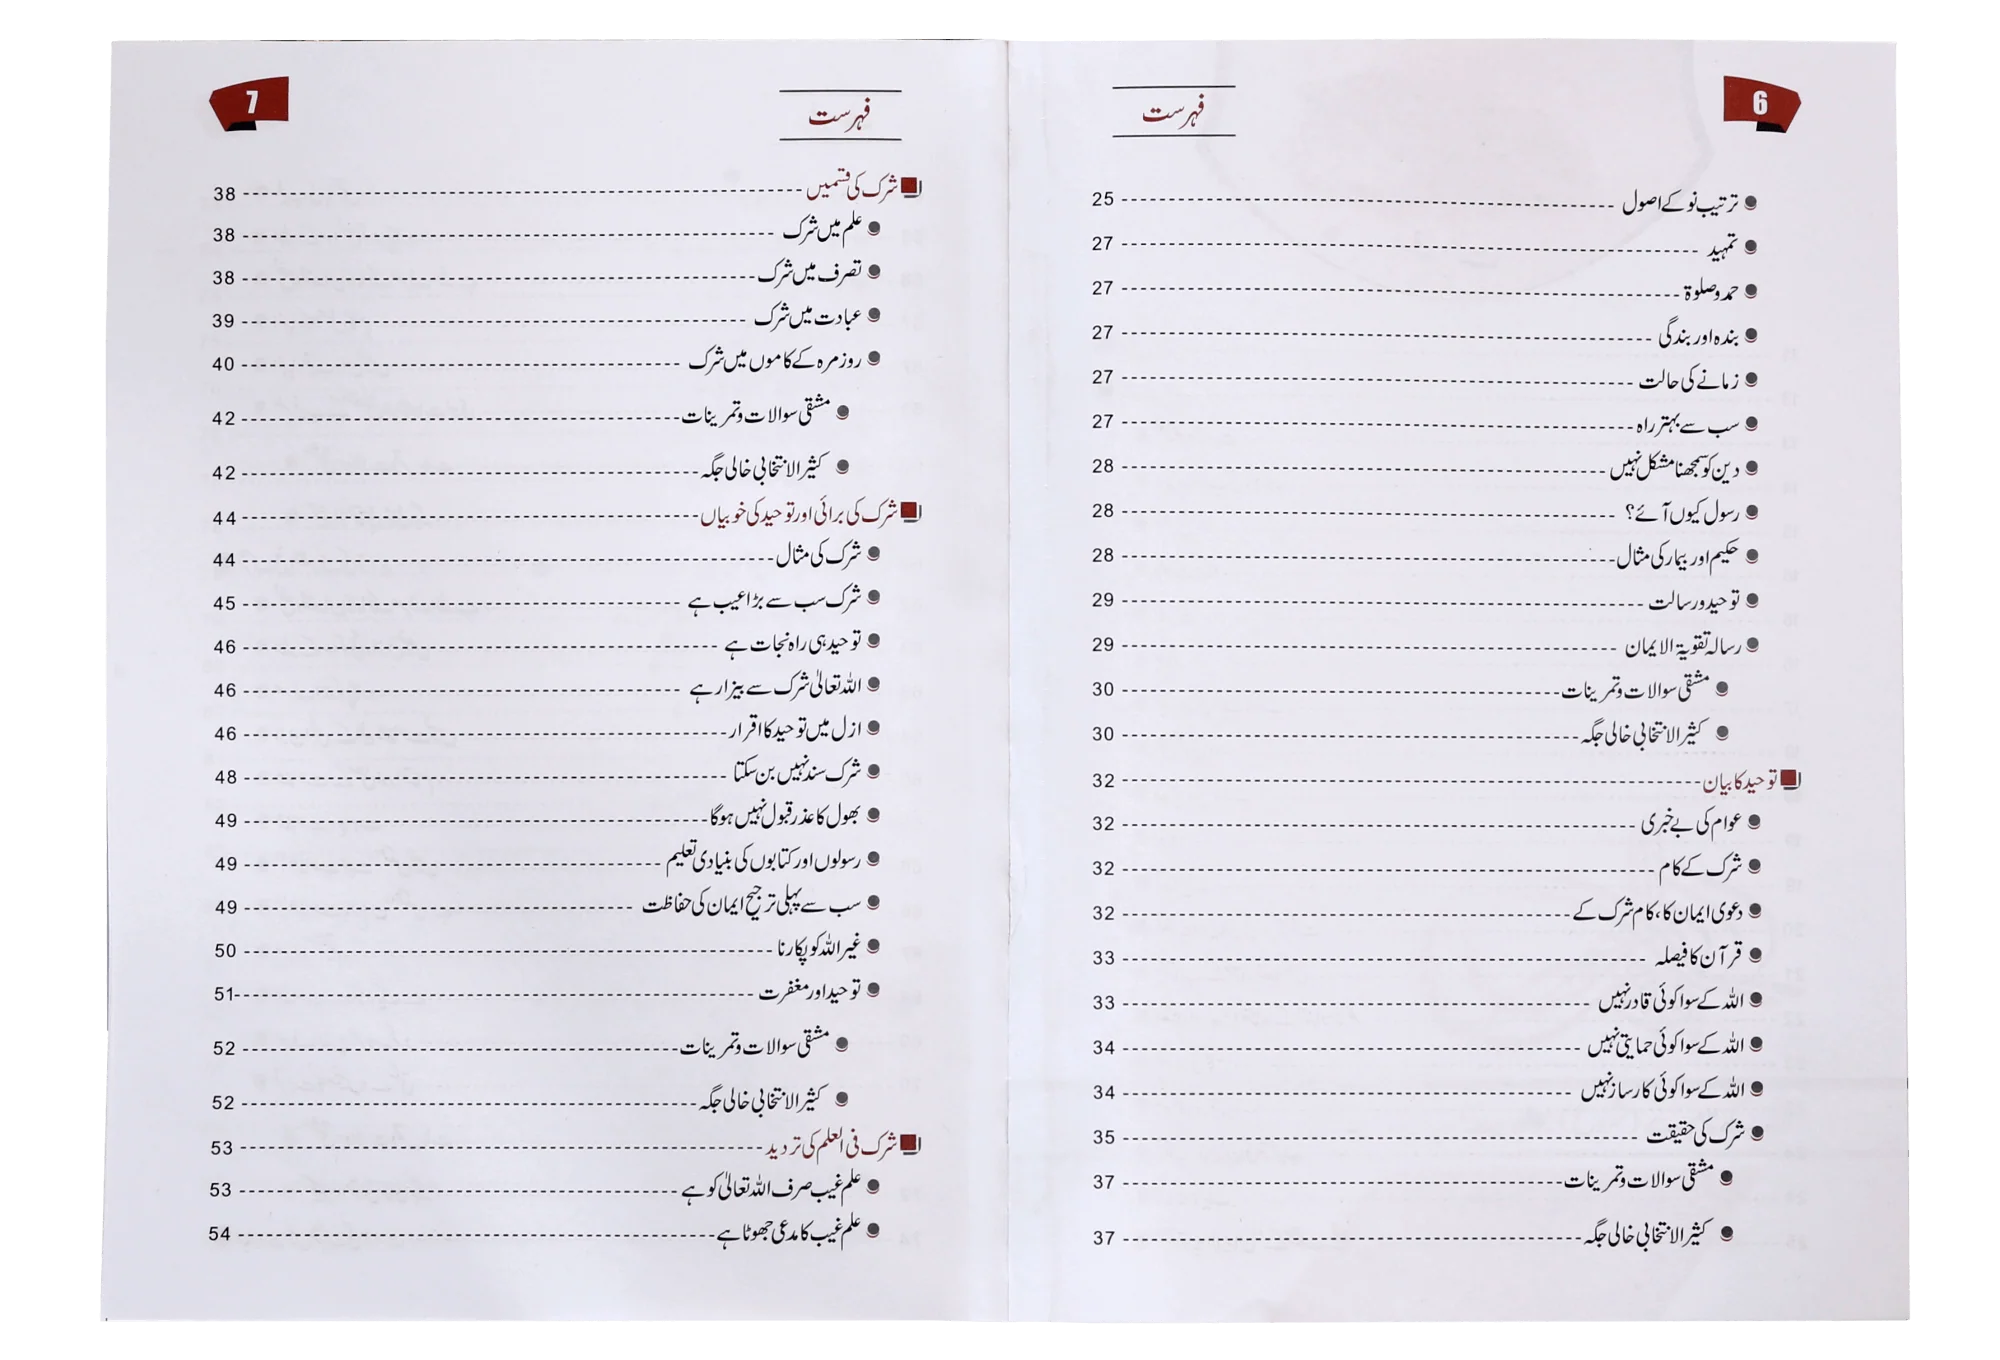 6
فہرست
ترتیب نو کے اصول ---------- 25
تمہید ---------- 27
حمد و صلوۃ ---------- 27
بندہ اور بندگی ---------- 27
زمانے کی حالت ---------- 27
سب سے بہتر راہ ---------- 27
دین کو سمجھنا مشکل نہیں ---------- 28
رسول کیوں آئے؟ ---------- 28
حکیم اور بیمار کی مثال ---------- 28
توحید و رسالت ---------- 29
رسالہ تقویۃ الایمان ---------- 29
مشقی سوالات و تمرینات ---------- 30
کثیر الانتخابی خالی جگہ ---------- 30
توحید کا بیان ---------- 32
عوام کی بے خبری ---------- 32
شرک کے کام ---------- 32
دعوی ایمان کا، کام شرک کے ---------- 32
قرآن کا فیصلہ ---------- 33
اللہ کے سوا کوئی قادر نہیں ---------- 33
اللہ کے سوا کوئی حمایتی نہیں ---------- 34
اللہ کے سوا کوئی کارساز نہیں ---------- 34
شرک کی حقیقت ---------- 35
مشقی سوالات و تمرینات ---------- 37
کثیر الانتخابی خالی جگہ ---------- 37
7
فہرست
شرک کی قسمیں ---------- 38
علم میں شرک ---------- 38
تصرف میں شرک ---------- 38
عبادت میں شرک ---------- 39
روز مرہ کے کاموں میں شرک ---------- 40
مشقی سوالات و تمرینات ---------- 42
کثیر الانتخابی خالی جگہ ---------- 42
شرک کی برائی اور توحید کی خوبیاں ---------- 44
شرک کی مثال ---------- 44
شرک سب سے بڑا عیب ہے ---------- 45
توحید ہی راہ نجات ہے ---------- 46
اللہ تعالیٰ شرک سے بیزار ہے ---------- 46
ازل میں توحید کا اقرار ---------- 46
شرک سند نہیں بن سکتا ---------- 48
بھول کا عذر قبول نہیں ہوگا ---------- 49
رسولوں اور کتابوں کی بنیادی تعلیم ---------- 49
سب سے پہلی ترجیح ایمان کی حفاظت ---------- 49
غیر اللہ کو پکارنا ---------- 50
توحید اور مغفرت ---------- 51
مشقی سوالات و تمرینات ---------- 52
کثیر الانتخابی خالی جگہ ---------- 52
شرک فی العلم کی تردید ---------- 53
علم غیب صرف اللہ تعالیٰ کو ہے ---------- 53
علم غیب کا مدعی جھوٹا ہے ---------- 54